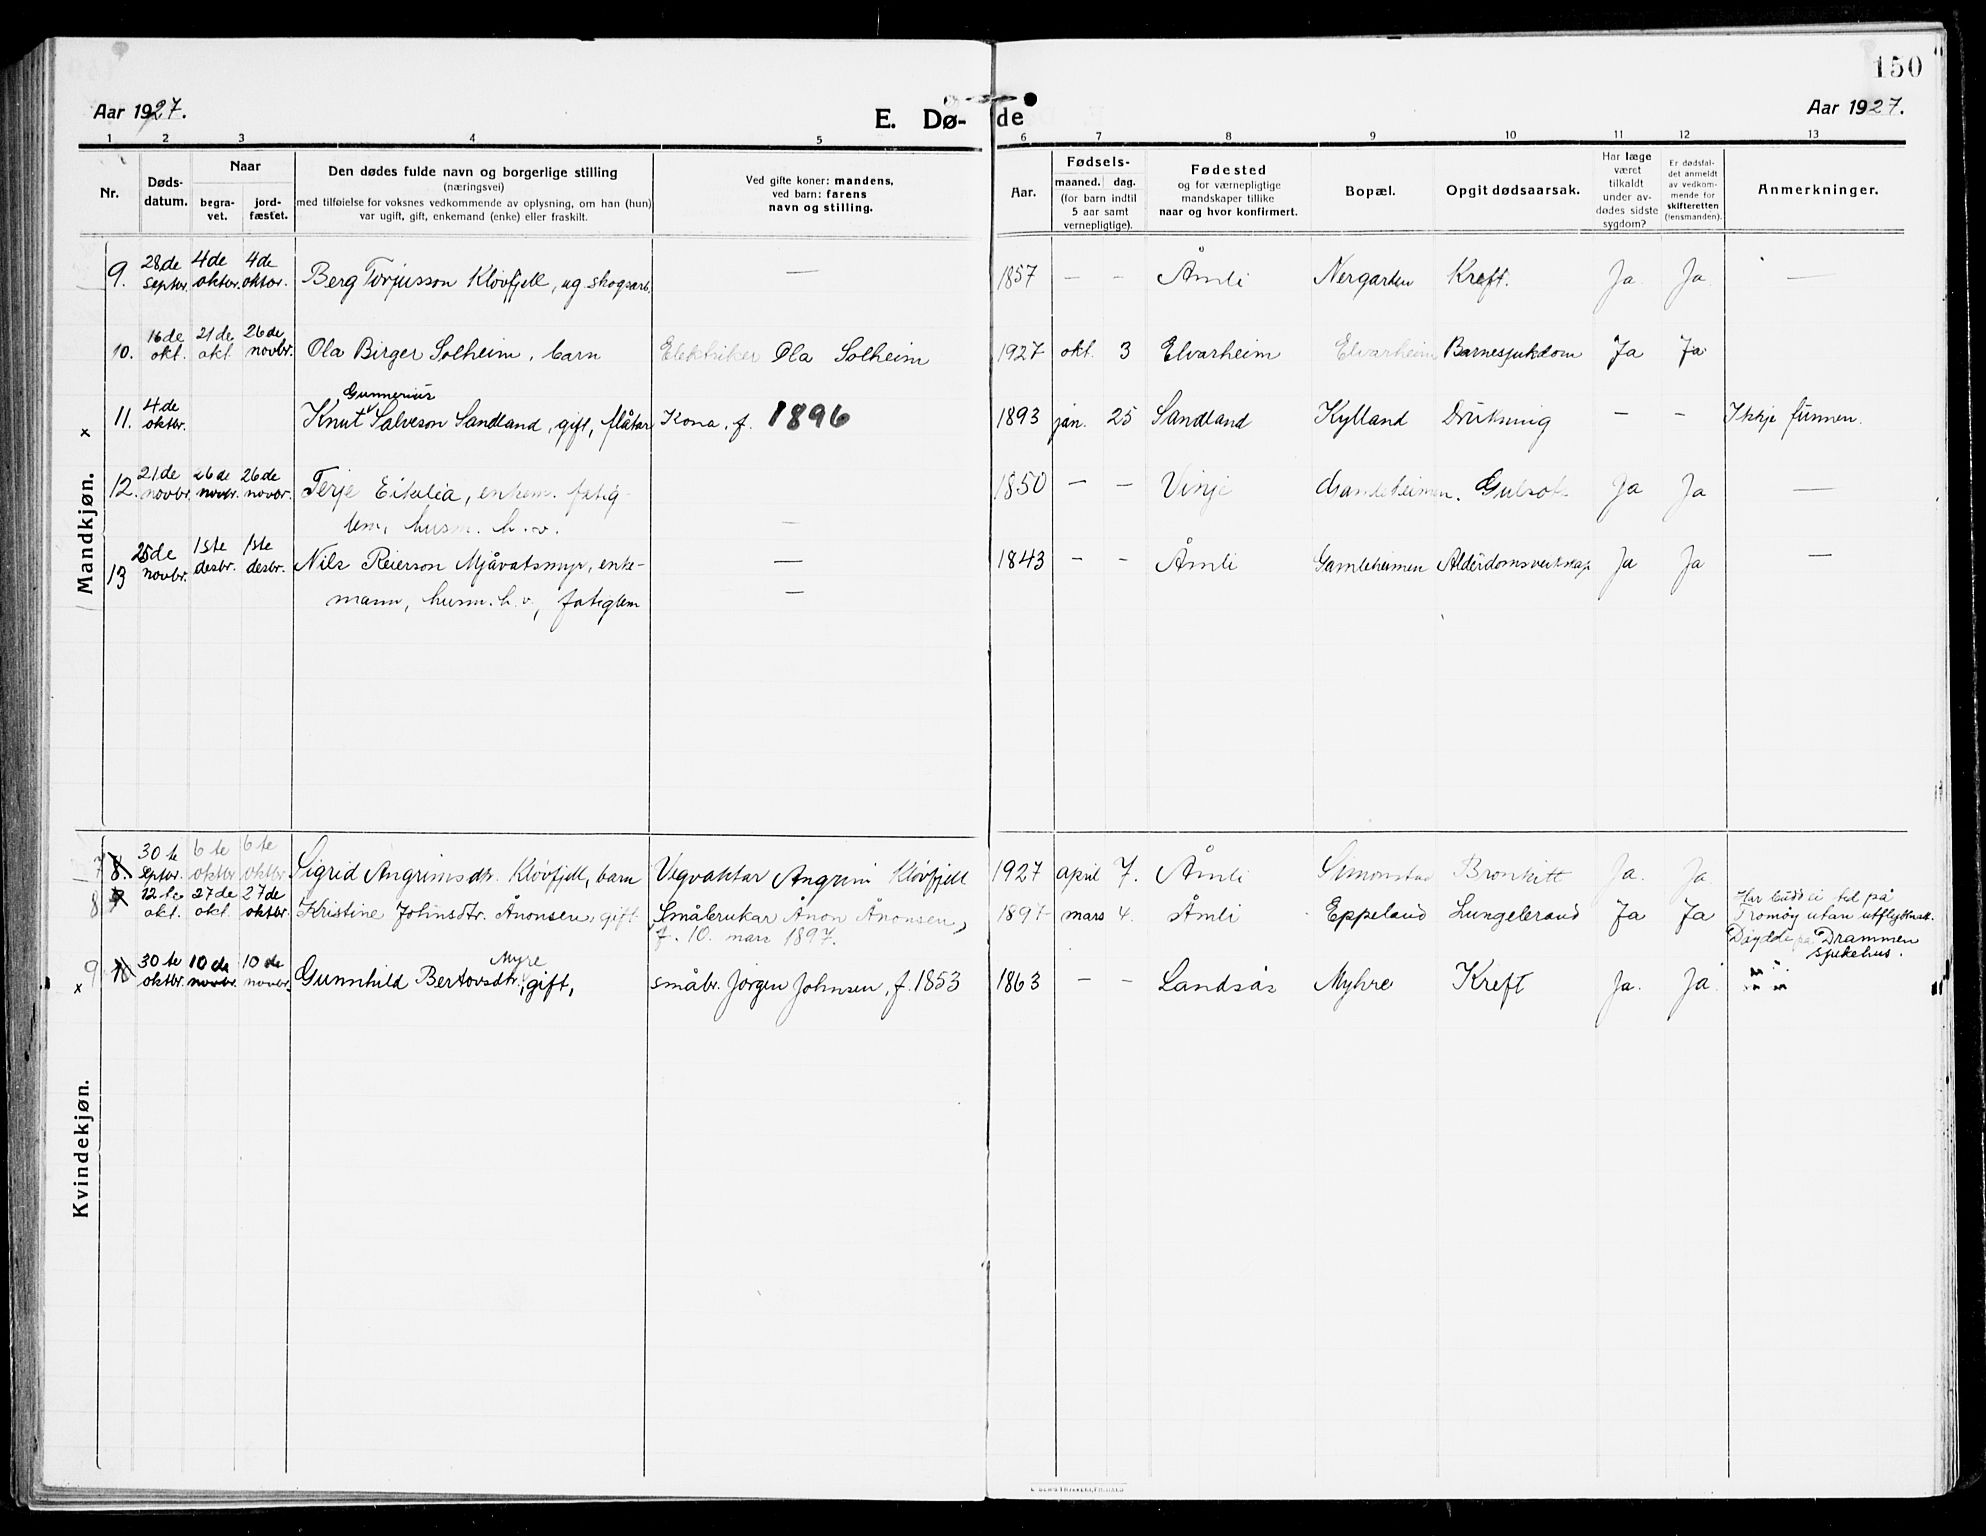 150
Aar 1927.
E. Dø- de
Aar 1927.
1 2 3 4 5 6 7 8 9 10 11 12 13
Nr.
Døds-
datum.
Naar
begra-
vet.
jord-
fæstet.
Den dødes fulde navn og borgerlige stilling
(næringsvei)
med tilføielse for voksnes vedkommende av oplysning, om han (hun)
var ugift, gift, enkemand (enke) eller fraskilt.
Ved gifte koner: mandens,
ved barn: farens
navn og stilling.
Aar.
Fødsels-
maaned. dag.
(for barn indtil
5 aar samt
vernepligtige).
Fødested
og for værnepligtige
mandskaper tillike
naar og hvor konfirmert.
Bopæl.
Opgit dødsaarsak.
Har læge
været
tilkaldt
under av-
dødes sidste
sygdom?
Er dødsfal-
det anmeldt
av vedkom-
mende for
skifteretten
(lensmanden).
Anmerkninger.
Mandkjøn.
9. 28de septbr. 4de oktbr. 4de oktbr. Berg Torjusson Kløvfjell, ug skogsarb. — 1857 — — Åmli Nergarden Kreft. Ja Ja —
10. 16de okt. 21de okt 26de novbr. Ola Birger Solheim, barn Elektriker Ola Solheim 1927 okt. 3 Elvarheim Elvarheim Barnesjukdom Ja Ja
Gunnerius
x 11. 4de oktbr. Knut Salveson Sandland, gift, fløtar Kona, f. 1896 1893 jan. 25 Sandland Kylland Drukning — — Ikkje funnen.
12. 21de novbr. 26de novbr. 26de novbr. Terje Eikelia, enkem. fatig- 1850 — — Vinje Gamleheimen. Gulsot. Ja Ja —
lem, husm. h. v. —
13 25de novbr. 1ste desbr. 1ste desbr. Nils Reierson Mjåvatsmyr, enke- — 1843 — — Åmli Gamleheimen Alderdomsveikskap Ja Ja —
mann, husm. h. v., fatiglem —
Kvindekjøn.
7 8. 30te septbr. 6te oktbr 6te oktbr. Sigrid Angrimsdtr. Kløvfjell, barn Vegvaktar Angrim Kløvfjell 1927 april 7. Åmli Simonstad Bronkitt Ja. Ja
8 9 12te okt. 27de okt. 27de oktbr. Kristine Johnsdtr. Ånonsen, gift Småbrukar Ånon Ånonsen, 1897 mars 4. Åmli Eppeland Lungebrand Ja Ja Har budd ei tid på
f. 10. mars 1897. Tromøy utan utflyttnatt.
Døydde på Drammen
sjukehus.
Myre
x 9 10 30te oktbr. 10de novbr. 10de novbr. Gunnhild Bertovsdtr., gift, småbr. Jørgen Johnsen, f. 1853 1863 — — Landsås Myhre Kreft Ja. Ja